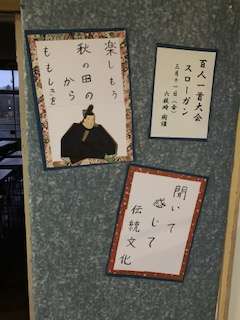 百人一首大会
スローガン
三月十一日(金)
六校時
楽しもう
秋の田の
から
ももしきを
聞いて
感じて
伝統文化